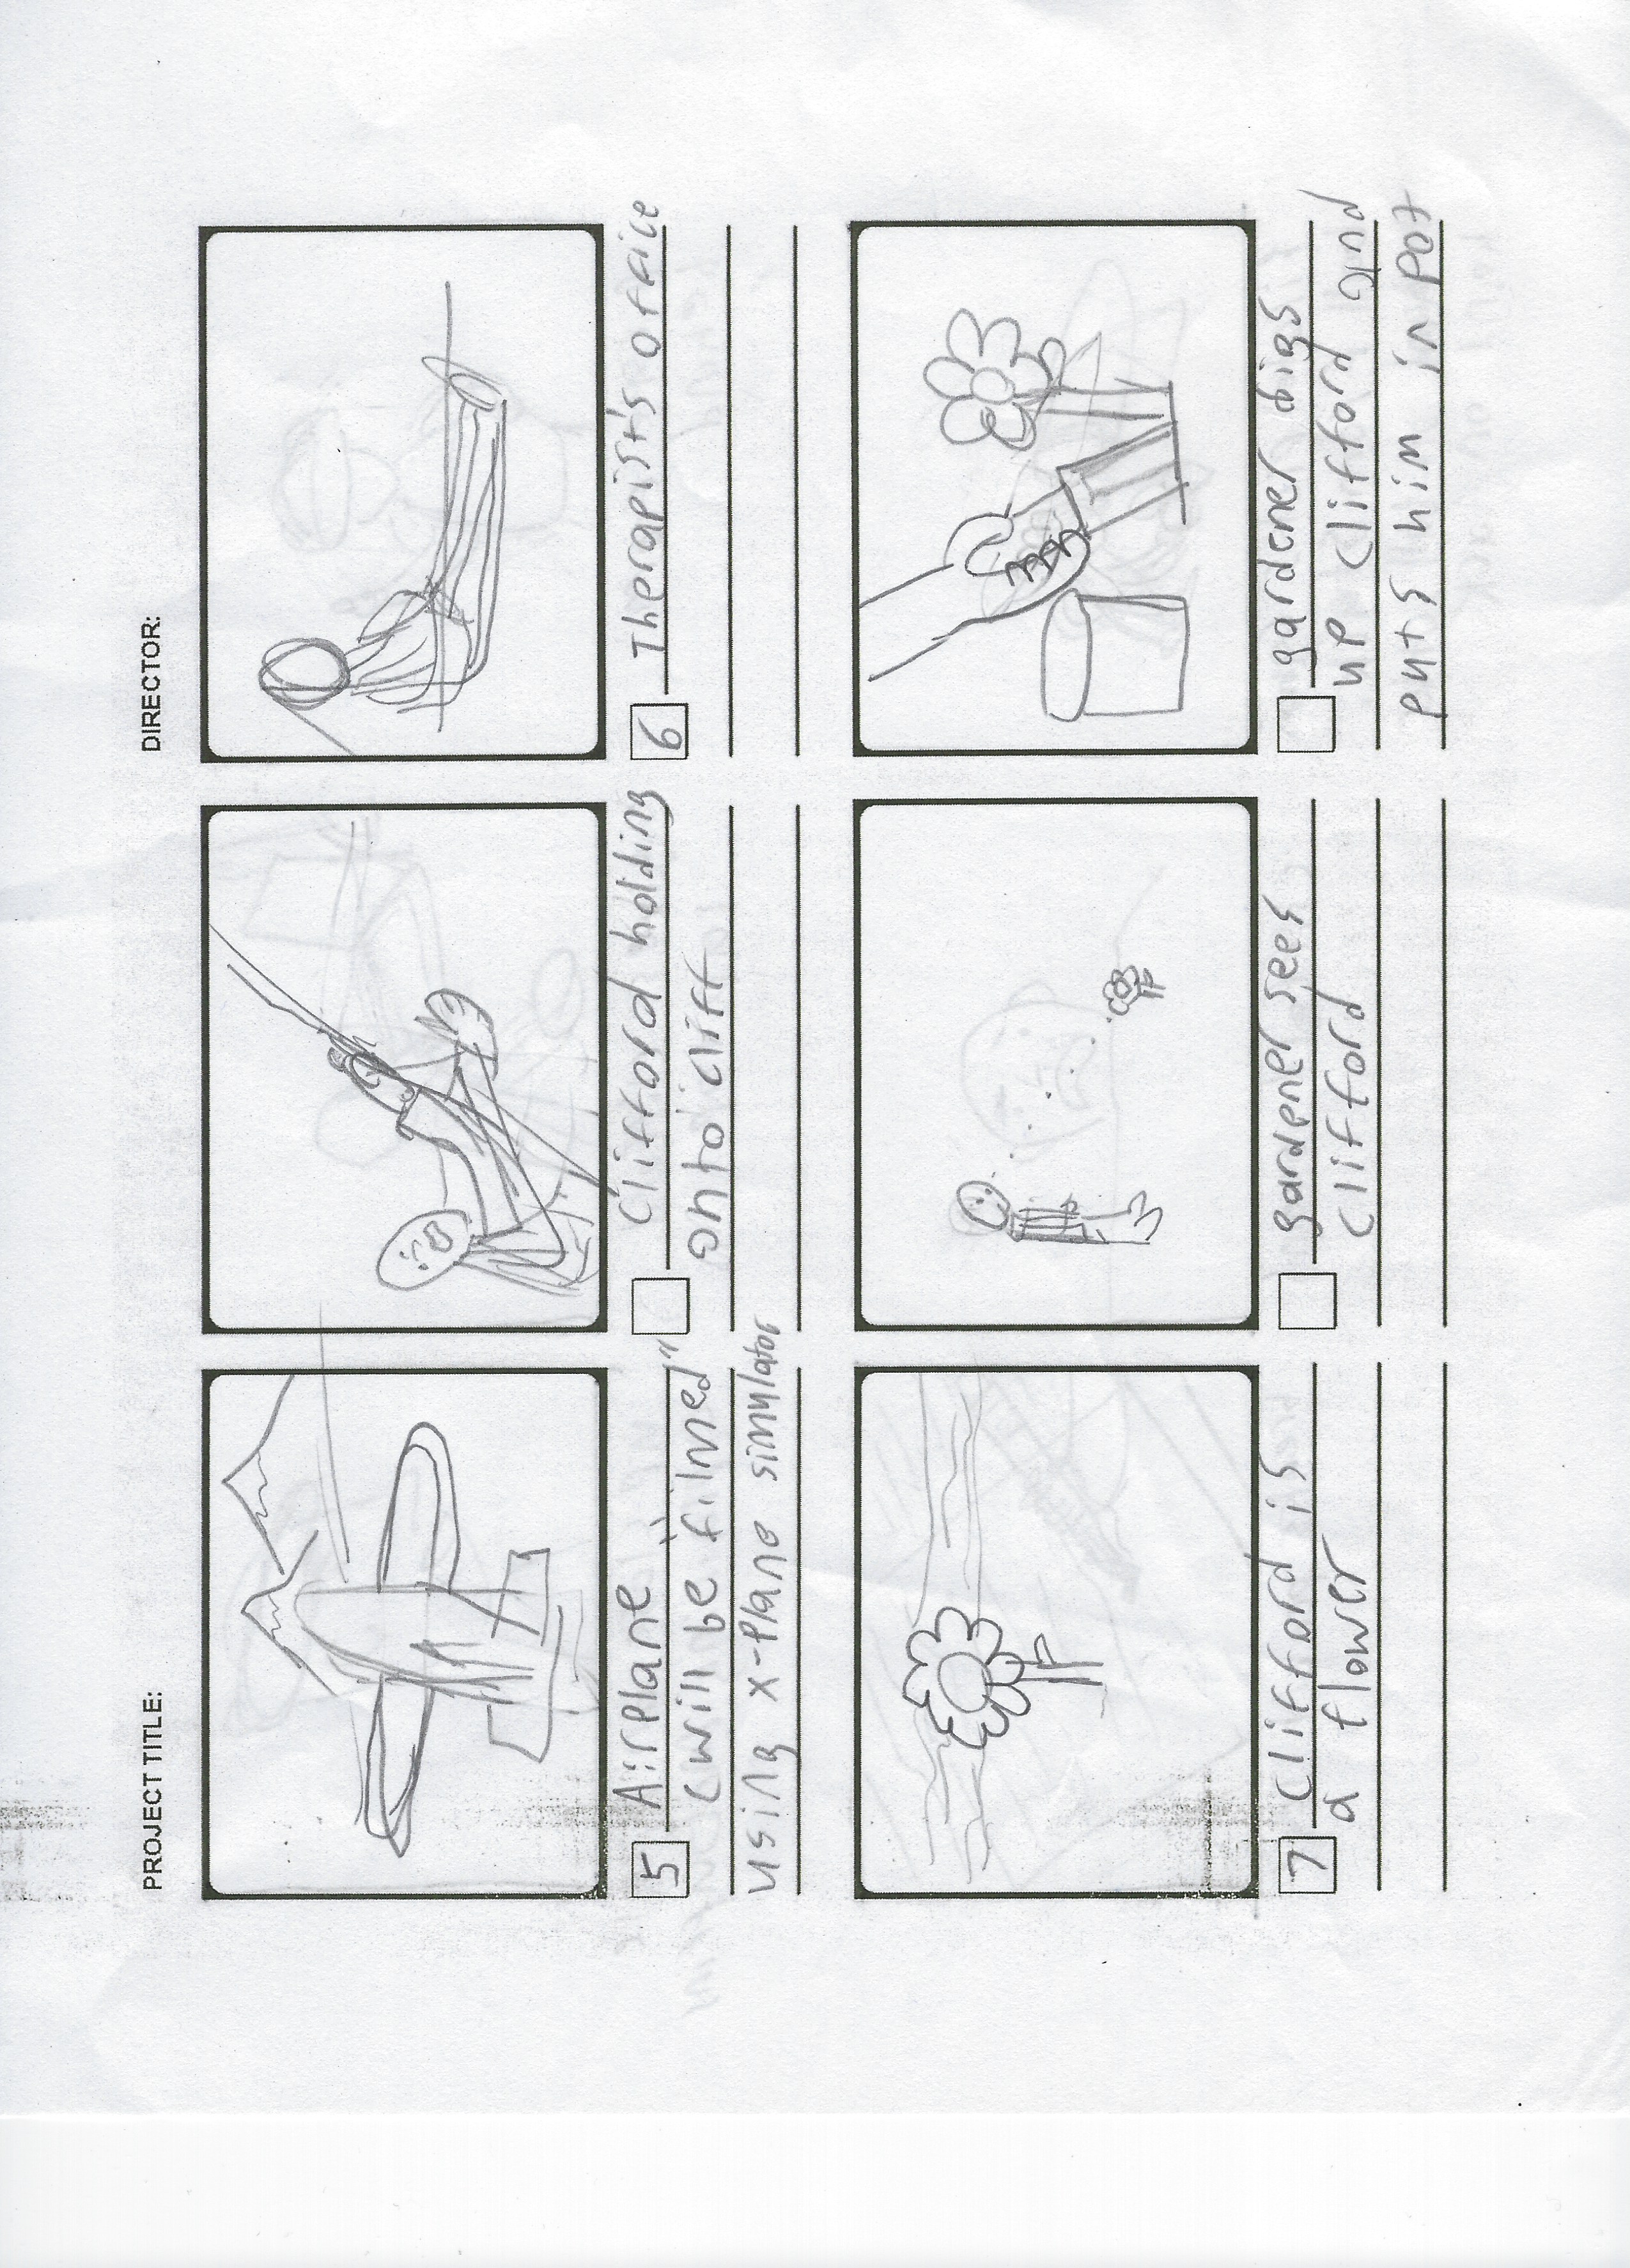 PROJECT TITLE:
DIRECTOR:
5 Airplane
(will be "filmed"
using x-Plane simulator
Clifford holding
onto cliff
6 Therapist's office
7 Clifford is
a flower
gardener sees
Clifford
gardener digs
up Clifford and
puts him in pot